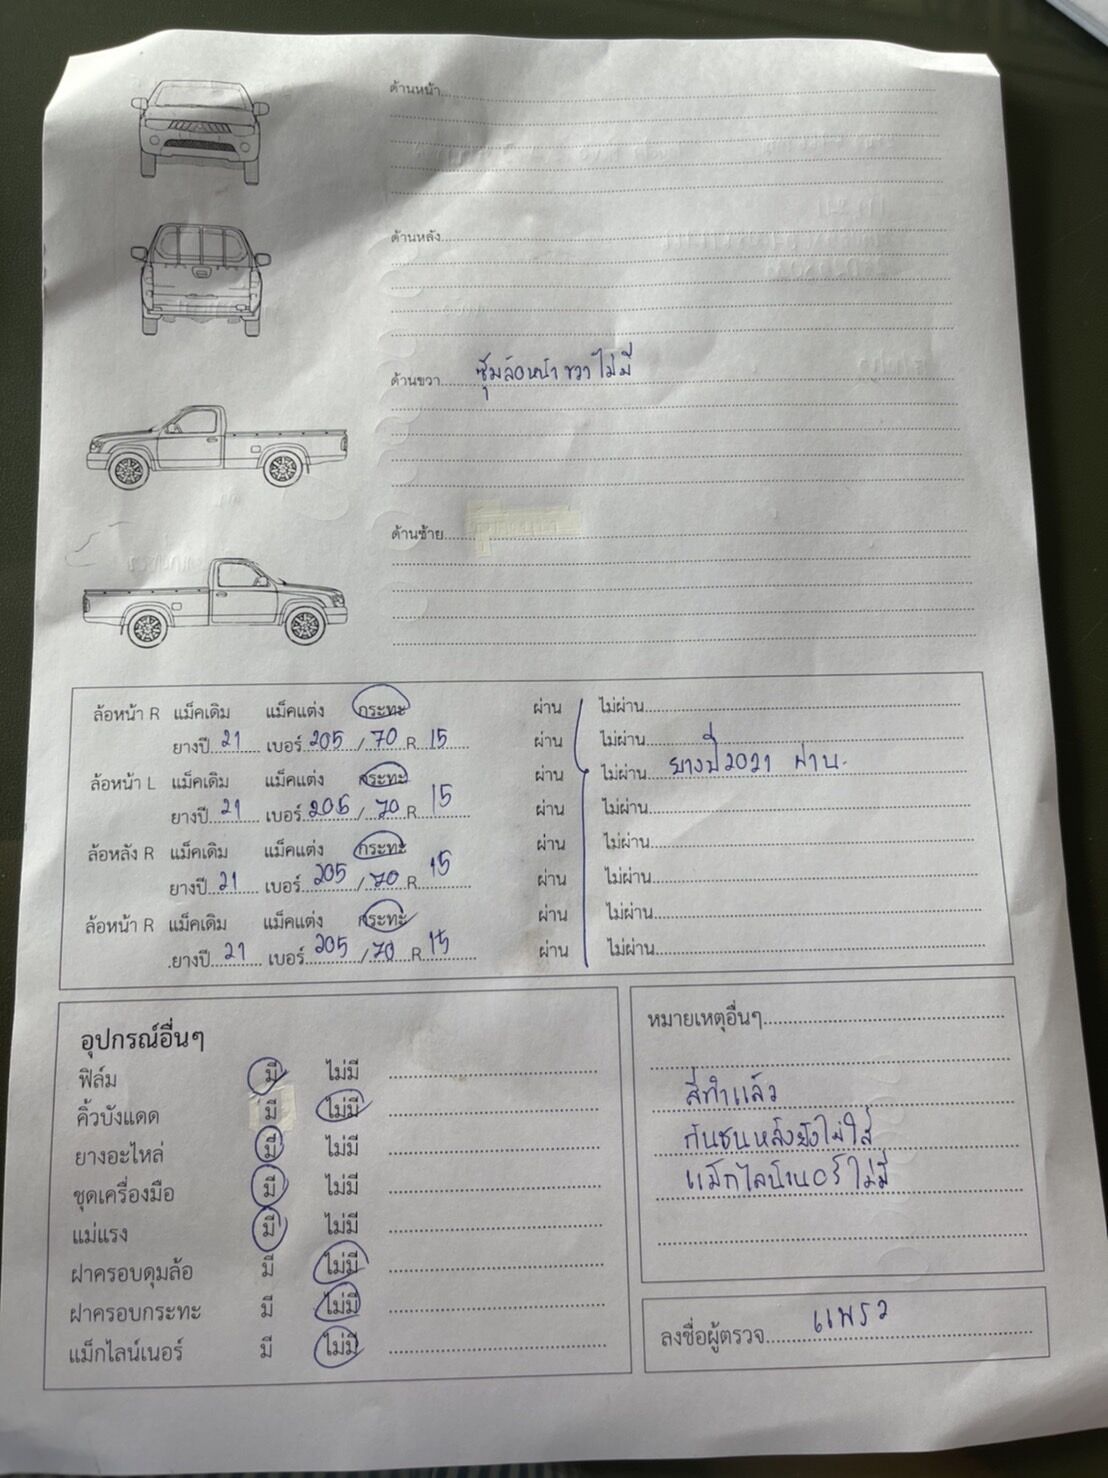 ด้านหน้า
ด้านหลัง
ด้านขวา ซุ้มล้อหน้าขวาไม่มี
ด้านซ้าย
ล้อหน้า R แม็คเดิม แม็คแต่ง กระทะ ผ่าน ไม่ผ่าน
ยางปี 21 เบอร์ 205 / 70 R 15 ผ่าน ไม่ผ่าน
ล้อหน้า L แม็คเดิม แม็คแต่ง กระทะ ผ่าน ไม่ผ่าน ยางปี 2021 ผ่าน
ยางปี 21 เบอร์ 205 / 70 R 15 ผ่าน ไม่ผ่าน
ล้อหลัง R แม็คเดิม แม็คแต่ง กระทะ ผ่าน ไม่ผ่าน
ยางปี 21 เบอร์ 205 / 70 R 15 ผ่าน ไม่ผ่าน
ล้อหน้า R แม็คเดิม แม็คแต่ง กระทะ ผ่าน ไม่ผ่าน
ยางปี 21 เบอร์ 205 / 70 R 15 ผ่าน ไม่ผ่าน
อุปกรณ์อื่นๆ
ฟิล์ม มี ไม่มี
คิ้วบังแดด มี ไม่มี
ยางอะไหล่ มี ไม่มี
ชุดเครื่องมือ มี ไม่มี
แม่แรง มี ไม่มี
ฝาครอบดุมล้อ มี ไม่มี
ฝาครอบกระทะ มี ไม่มี
แม็กไลน์เนอร์ มี ไม่มี
หมายเหตุอื่นๆ
สีทำแล้ว
กันชนหลังยังไม่ใส่
แม็กไลน์เนอร์ไม่มี
ลงชื่อผู้ตรวจ แพรว